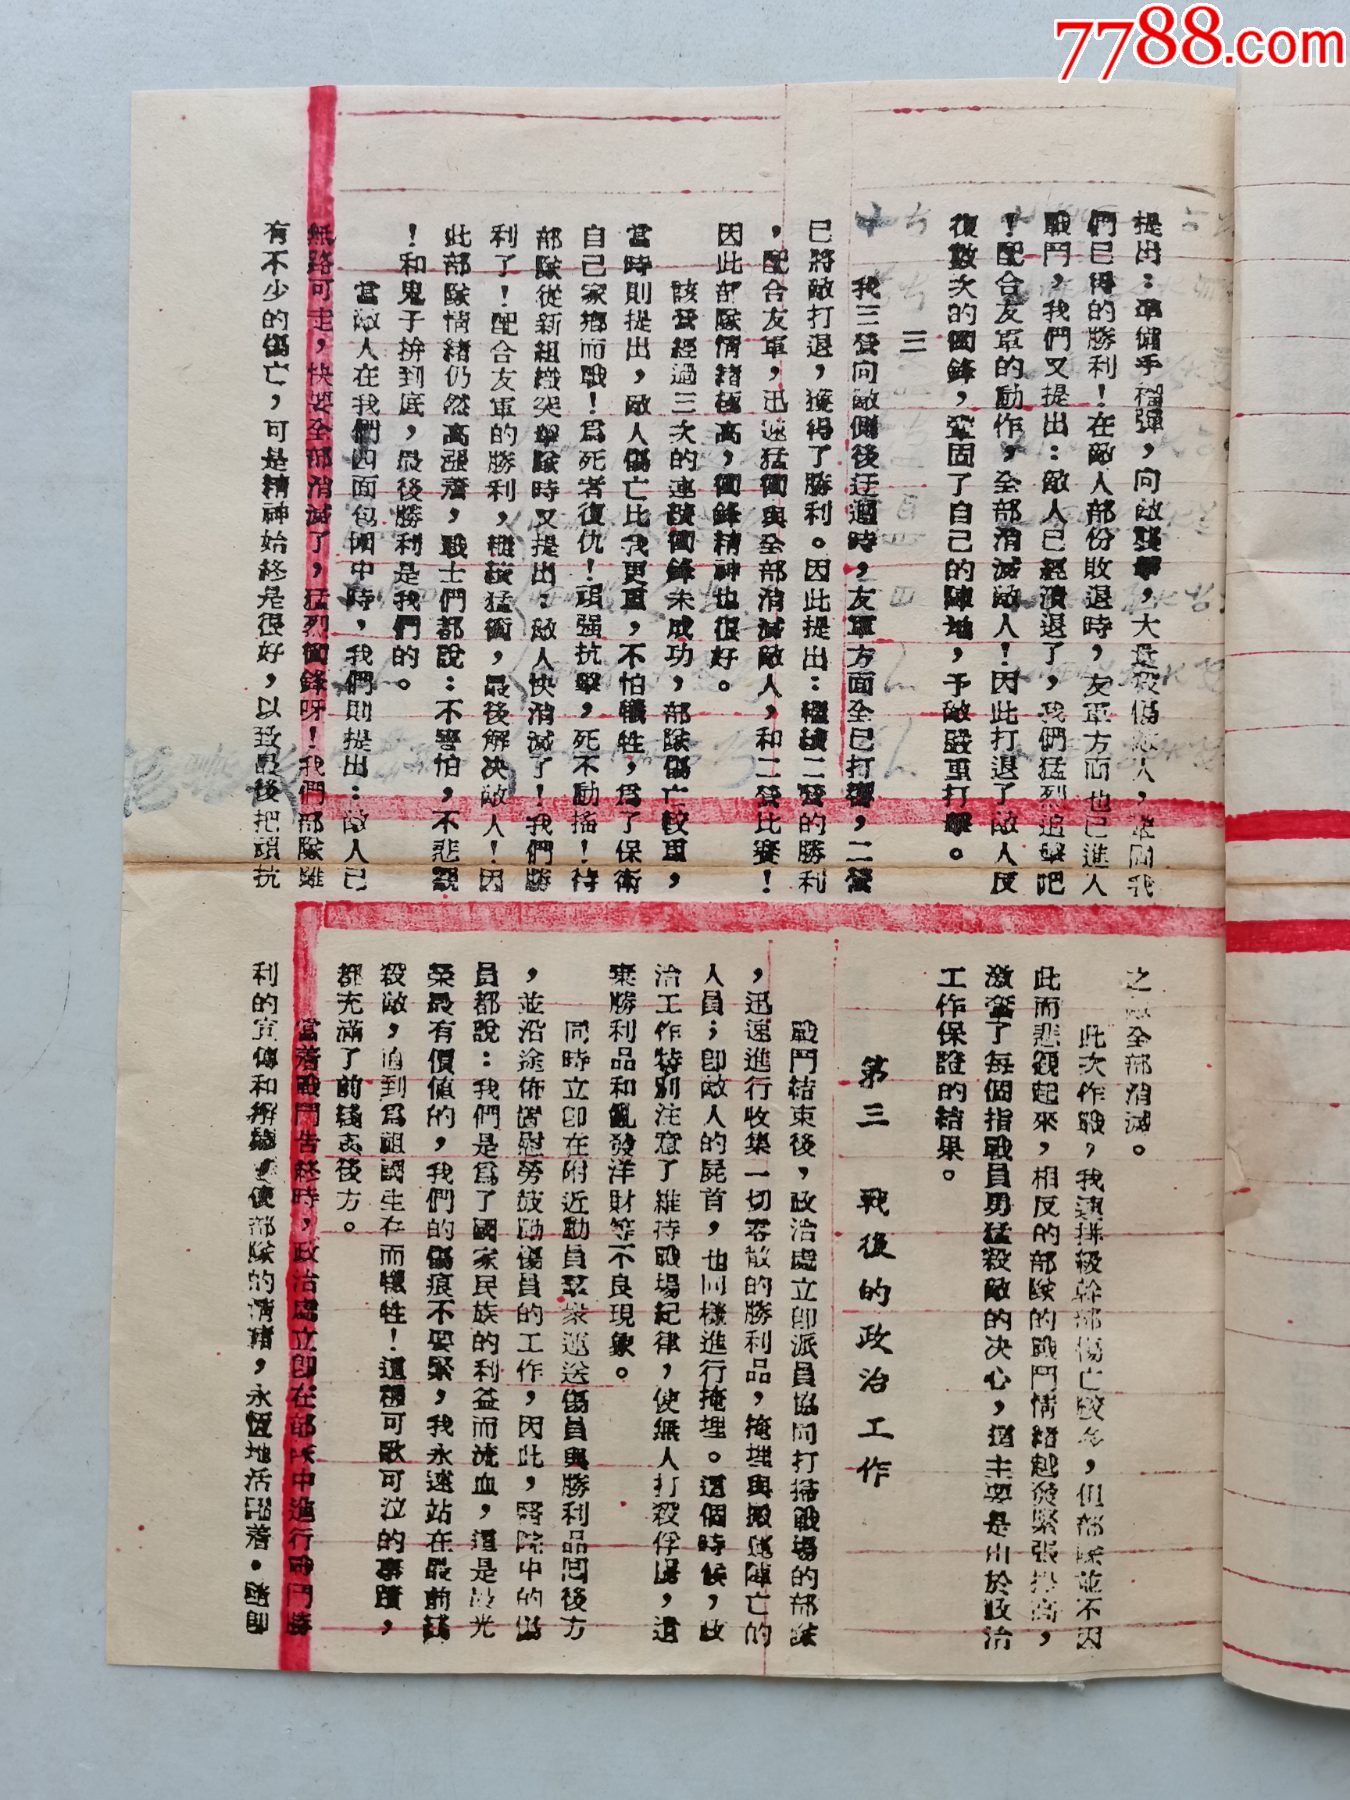 7788.com
提出：準備手榴彈，向敵襲擊，大量殺傷敵人，鞏固我
們已得的勝利！在敵人部份敗退時，友軍方面也已進入
戰鬥，我們又提出：敵人已經潰退了，我們猛烈追擊吧
！配合友軍的動作，全部消滅敵人！因此打退了敵人反
復數次的衝鋒，鞏固了自己的陣地，予敵嚴重打擊。
三
我三營向敵側後迂迴時，友軍方面全已打響，二營
已將敵打退，獲得了勝利。因此提出：繼續二營的勝利
，配合友軍，迅速猛衝與全部消滅敵人，和二營比賽！
因此部隊情緒極高，衝鋒精神也很好。
該營經過三次的連續衝鋒未成功，部隊傷亡較重，
當時則提出，敵人傷亡比我更重，不怕犧牲，爲了保衛
自己家鄉而戰！爲死者復仇！頑强抗擊，死不動搖！待
部隊從新組織突擊隊時又提出：敵人快消滅了！我們勝
利了！配合友軍的勝利，縱橫猛衝，最後解决敵人！因
此部隊情緒仍然高漲着，戰士們都說：不害怕，不悲觀
！和鬼子拚到底，最後勝利是我們的。
當敵人在我們四面包圍中時，我們則提出：敵人已
無路可走，快要全部消滅了，猛烈衝鋒呀！我們部隊雖
有不少的傷亡，可是精神始終是很好，以致最後把頑抗
之敵全部消滅。
此次作戰，我連排級幹部傷亡較多，但部隊並不因
此而悲觀起來，相反的部隊的戰鬥情緒越發緊張提高，
激奮了每個指戰員勇猛殺敵的决心，這主要是由於政治
工作保證的結果。
第三　戰後的政治工作
戰鬥結束後，政治處立即派員協同打掃戰場的部隊
，迅速進行收集一切零散的勝利品，掩埋與搬運陣亡的
人員；即敵人的屍首，也同樣進行掩埋。這個時候，政
治工作特別注意了維持戰場紀律，使無人打殺俘虜，遺
棄勝利品和亂發洋財等不良現象。
同時立即在附近動員羣衆運送傷員與勝利品回後方
，並沿途佈置慰勞鼓勵傷員的工作，因此，醫院中的傷
員都說：我們是爲了國家民族的利益而流血，這是最光
榮最有價值的，我們的傷痕不要緊，我永遠站在最前綫
殺敵，直到爲祖國生存而犧牲！這種可歌可泣的事蹟，
都充滿了前綫與後方。
當着戰鬥告終時，政治處立即在部隊中進行戰鬥勝
利的宣傳和解釋，使部隊的情緒，永恆地活躍着。隨即